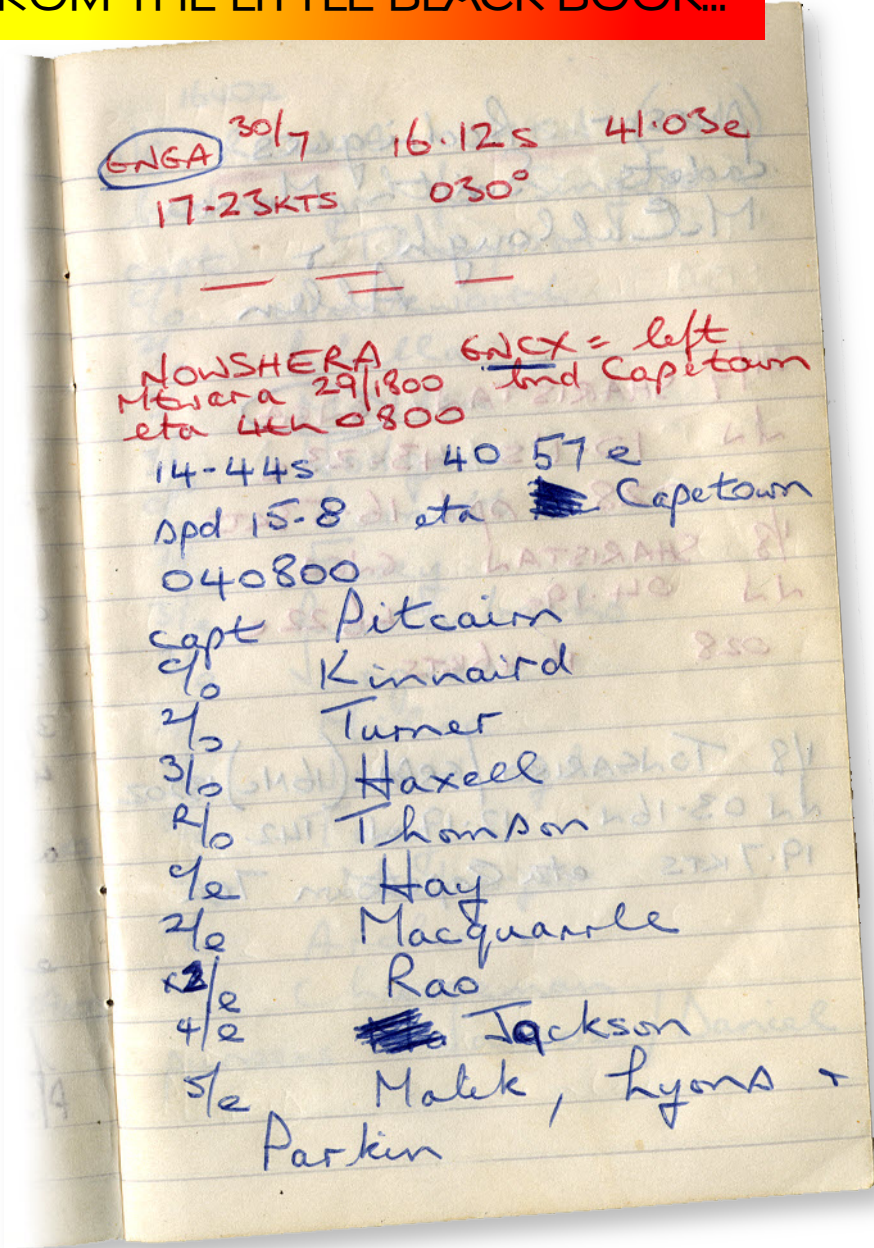 FROM THE LITTLE BLACK BOOK...
GNGA 30/7 16.12s 41.03e
17-23KTS 030°
NOWSHERA GNCX = left
Mtwara 29/1800 bnd Capetown
eta 4th 0800
14-44s 40 57 e
spd 15.8 eta Capetown
040800
capt Pitcairn
c/o Kinnaird
2/o Turner
3/o Haxell
R/o Thomson
c/e Hay
2/e Macquarrie
/e Rao
4/e Jackson
5/e Malek, Lyons +
Parkin